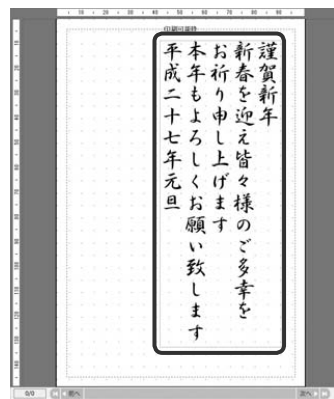 印刷可能枠
謹賀新年
新春を迎え皆々様のご多幸を
お祈り申し上げます
本年もよろしくお願い致します
平成二十七年元旦
0/0
前へ
次へ